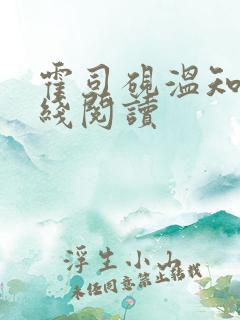 霍司砚温知
线阅读
浮生小山
未经同意禁止转载